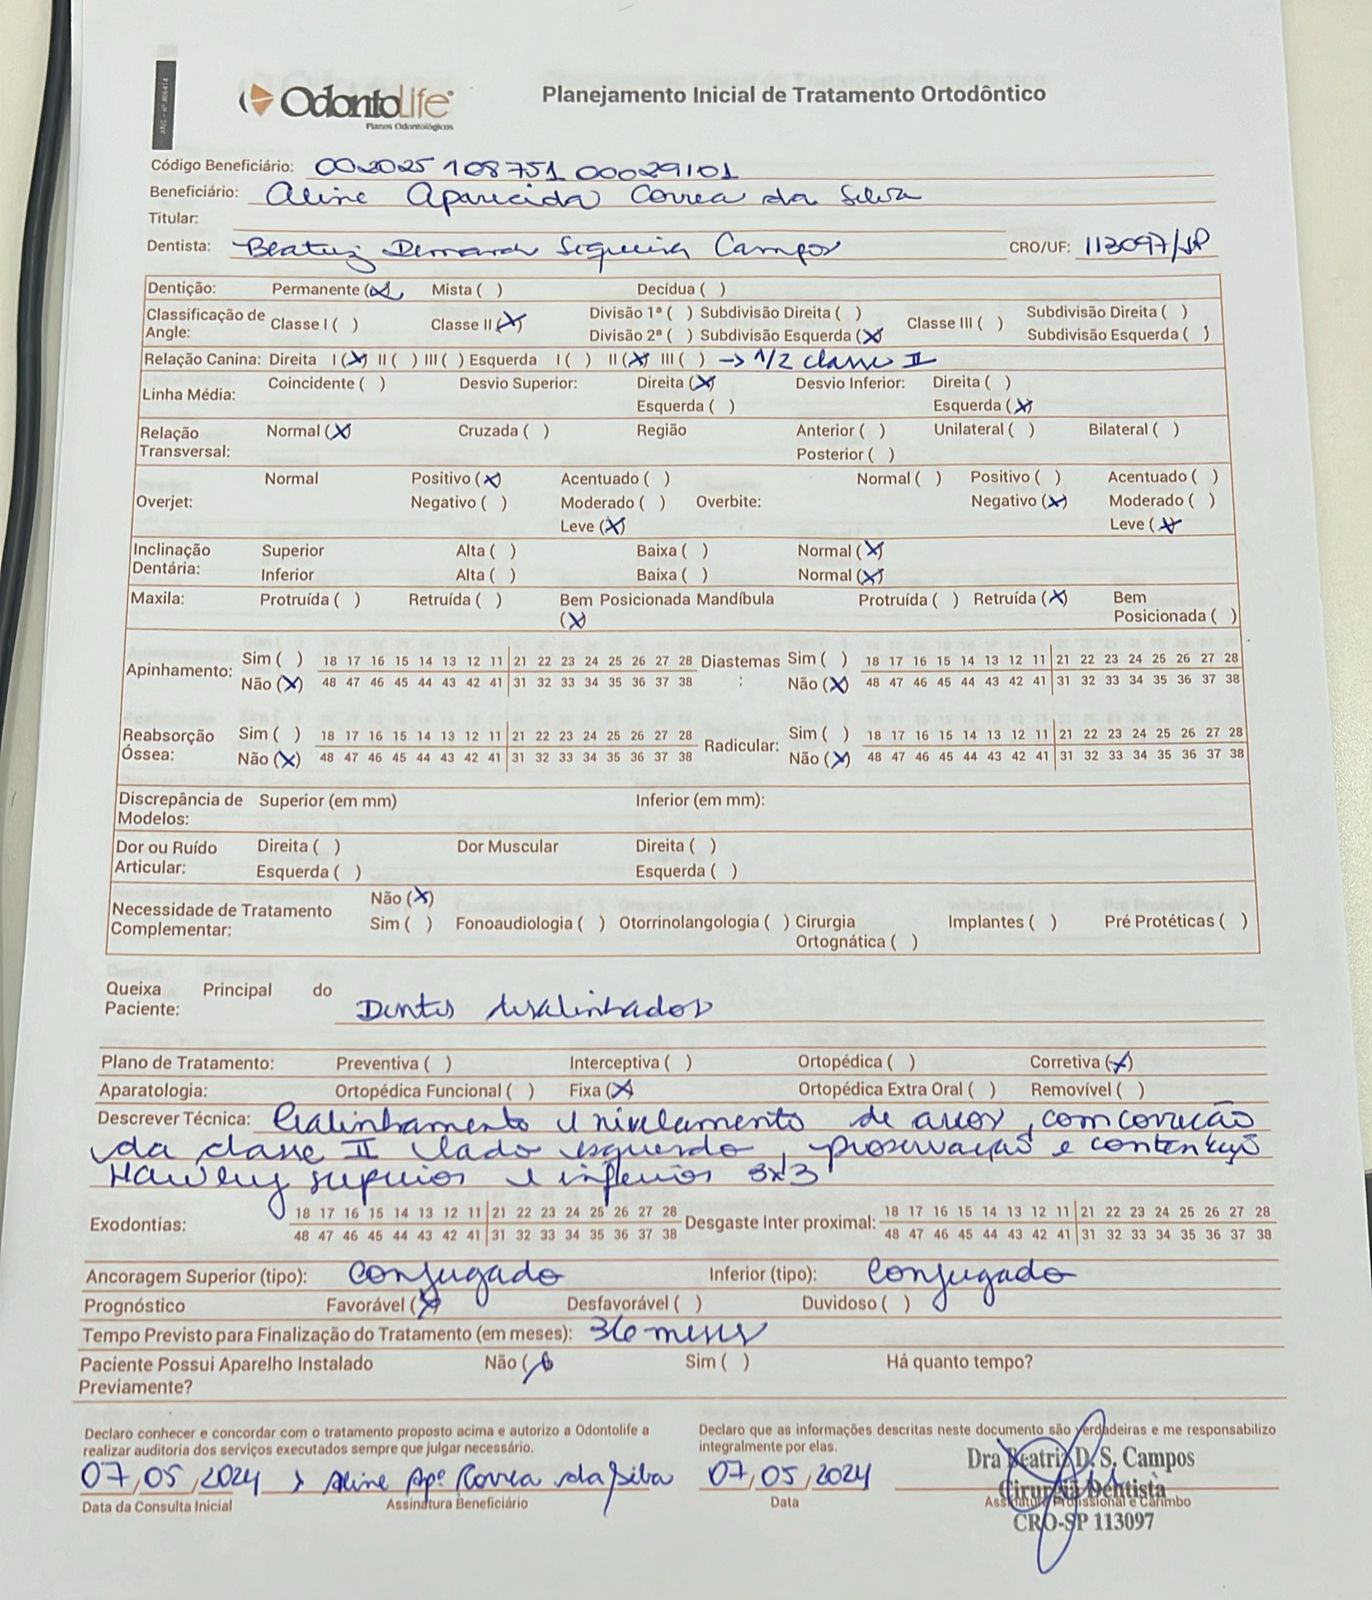 OdontoLife
Planos Odontológicos
Planejamento Inicial de Tratamento Ortodôntico
Código Beneficiário: 002025 108751 00029101
Beneficiário: Aline Aparecida Correa da Silva
Titular:
Dentista: Beatriz Siqueira Campos CRO/UF: 113097/SP
Dentição: Permanente (x) Mista ( ) Decídua ( )
Classificação de Angle: Classe I ( ) Classe II (x) Divisão 1ª ( ) Subdivisão Direita ( ) Classe III ( ) Subdivisão Direita ( )
Divisão 2ª ( ) Subdivisão Esquerda (x) Subdivisão Esquerda ( )
Relação Canina: Direita I (x) II ( ) III ( ) Esquerda I ( ) II (x) III ( ) → 1/2 classe II
Linha Média: Coincidente ( ) Desvio Superior: Direita (x) Desvio Inferior: Direita ( )
Esquerda ( ) Esquerda (x)
Relação Transversal: Normal (x) Cruzada ( ) Região Anterior ( ) Unilateral ( ) Bilateral ( )
Posterior ( )
Overjet: Normal Positivo (x) Acentuado ( ) Overbite: Normal ( ) Positivo ( ) Acentuado ( )
Negativo ( ) Moderado ( ) Negativo (x) Moderado ( )
Leve (x) Leve (x)
Inclinação Dentária: Superior Alta ( ) Baixa ( ) Normal (x)
Inferior Alta ( ) Baixa ( ) Normal (x)
Maxila: Protruída ( ) Retruída ( ) Bem Posicionada (x) Mandíbula Protruída ( ) Retruída (x) Bem Posicionada ( )
Apinhamento: Sim ( ) 18 17 16 15 14 13 12 11 21 22 23 24 25 26 27 28 Diastemas: Sim ( ) 18 17 16 15 14 13 12 11 21 22 23 24 25 26 27 28
Não (x) 48 47 46 45 44 43 42 41 31 32 33 34 35 36 37 38 Não (x) 48 47 46 45 44 43 42 41 31 32 33 34 35 36 37 38
Reabsorção Óssea: Sim ( ) 18 17 16 15 14 13 12 11 21 22 23 24 25 26 27 28 Radicular: Sim ( ) 18 17 16 15 14 13 12 11 21 22 23 24 25 26 27 28
Não (x) 48 47 46 45 44 43 42 41 31 32 33 34 35 36 37 38 Não (x) 48 47 46 45 44 43 42 41 31 32 33 34 35 36 37 38
Discrepância de Modelos: Superior (em mm) Inferior (em mm):
Dor ou Ruído Articular: Direita ( ) Dor Muscular Direita ( )
Esquerda ( ) Esquerda ( )
Necessidade de Tratamento Complementar: Não (x)
Sim ( ) Fonoaudiologia ( ) Otorrinolangologia ( ) Cirurgia Ortognática ( ) Implantes ( ) Pré Protéticas ( )
Queixa Principal do Paciente: Dentes desalinhados
Plano de Tratamento: Preventiva ( ) Interceptiva ( ) Ortopédica ( ) Corretiva (x)
Aparatologia: Ortopédica Funcional ( ) Fixa (x) Ortopédica Extra Oral ( ) Removível ( )
Descrever Técnica: Realinhamento e nivelamento de arcos, com correção
da classe II lado esquerdo, proservação e contenção
Hawley superior e inferior 3x3
Exodontias: 18 17 16 15 14 13 12 11 21 22 23 24 25 26 27 28 Desgaste Inter proximal: 18 17 16 15 14 13 12 11 21 22 23 24 25 26 27 28
48 47 46 45 44 43 42 41 31 32 33 34 35 36 37 38 48 47 46 45 44 43 42 41 31 32 33 34 35 36 37 38
Ancoragem Superior (tipo): conjugado Inferior (tipo): conjugado
Prognóstico Favorável (x) Desfavorável ( ) Duvidoso ( )
Tempo Previsto para Finalização do Tratamento (em meses): 36 meses
Paciente Possui Aparelho Instalado Previamente? Não (x) Sim ( ) Há quanto tempo?
Declaro conhecer e concordar com o tratamento proposto acima e autorizo a Odontolife a
realizar auditoria dos serviços executados sempre que julgar necessário.
Declaro que as informações descritas neste documento são verdadeiras e me responsabilizo
integralmente por elas.
07/05/2024 Aline Apª Correa da Silva 07/05/2024
Data da Consulta Inicial Assinatura Beneficiário Data Assinatura Profissional e Carimbo
Dra Beatriz D. S. Campos
Cirurgiã Dentista
CRO-SP 113097